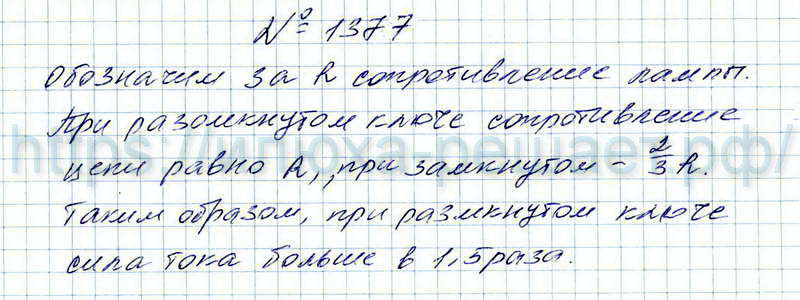 № 1377
Обозначим за R сопротивление лампы.
При разомкнутом ключе сопротивление
цепи равно R, при замкнутом - 2/3 R.
Таким образом, при размкнутом ключе
сила тока больше в 1,5 раза.
https://мпоха.решает.рф/